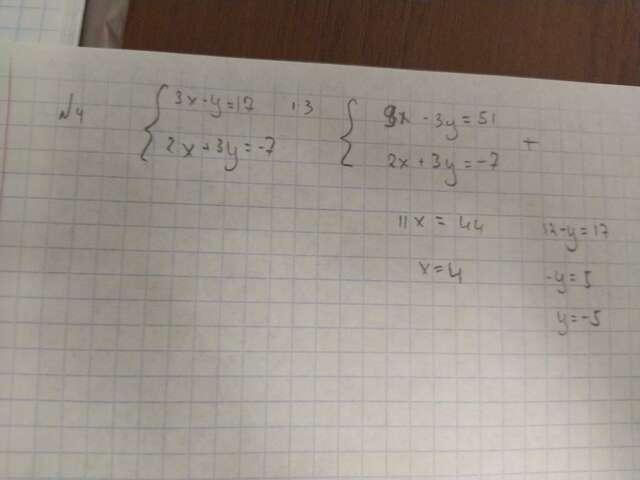 №4
3x - y = 17 | · 3
2x + 3y = -7
9x - 3y = 51
2x + 3y = -7
+
11x = 44
x = 4
12 - y = 17
-y = 5
y = -5